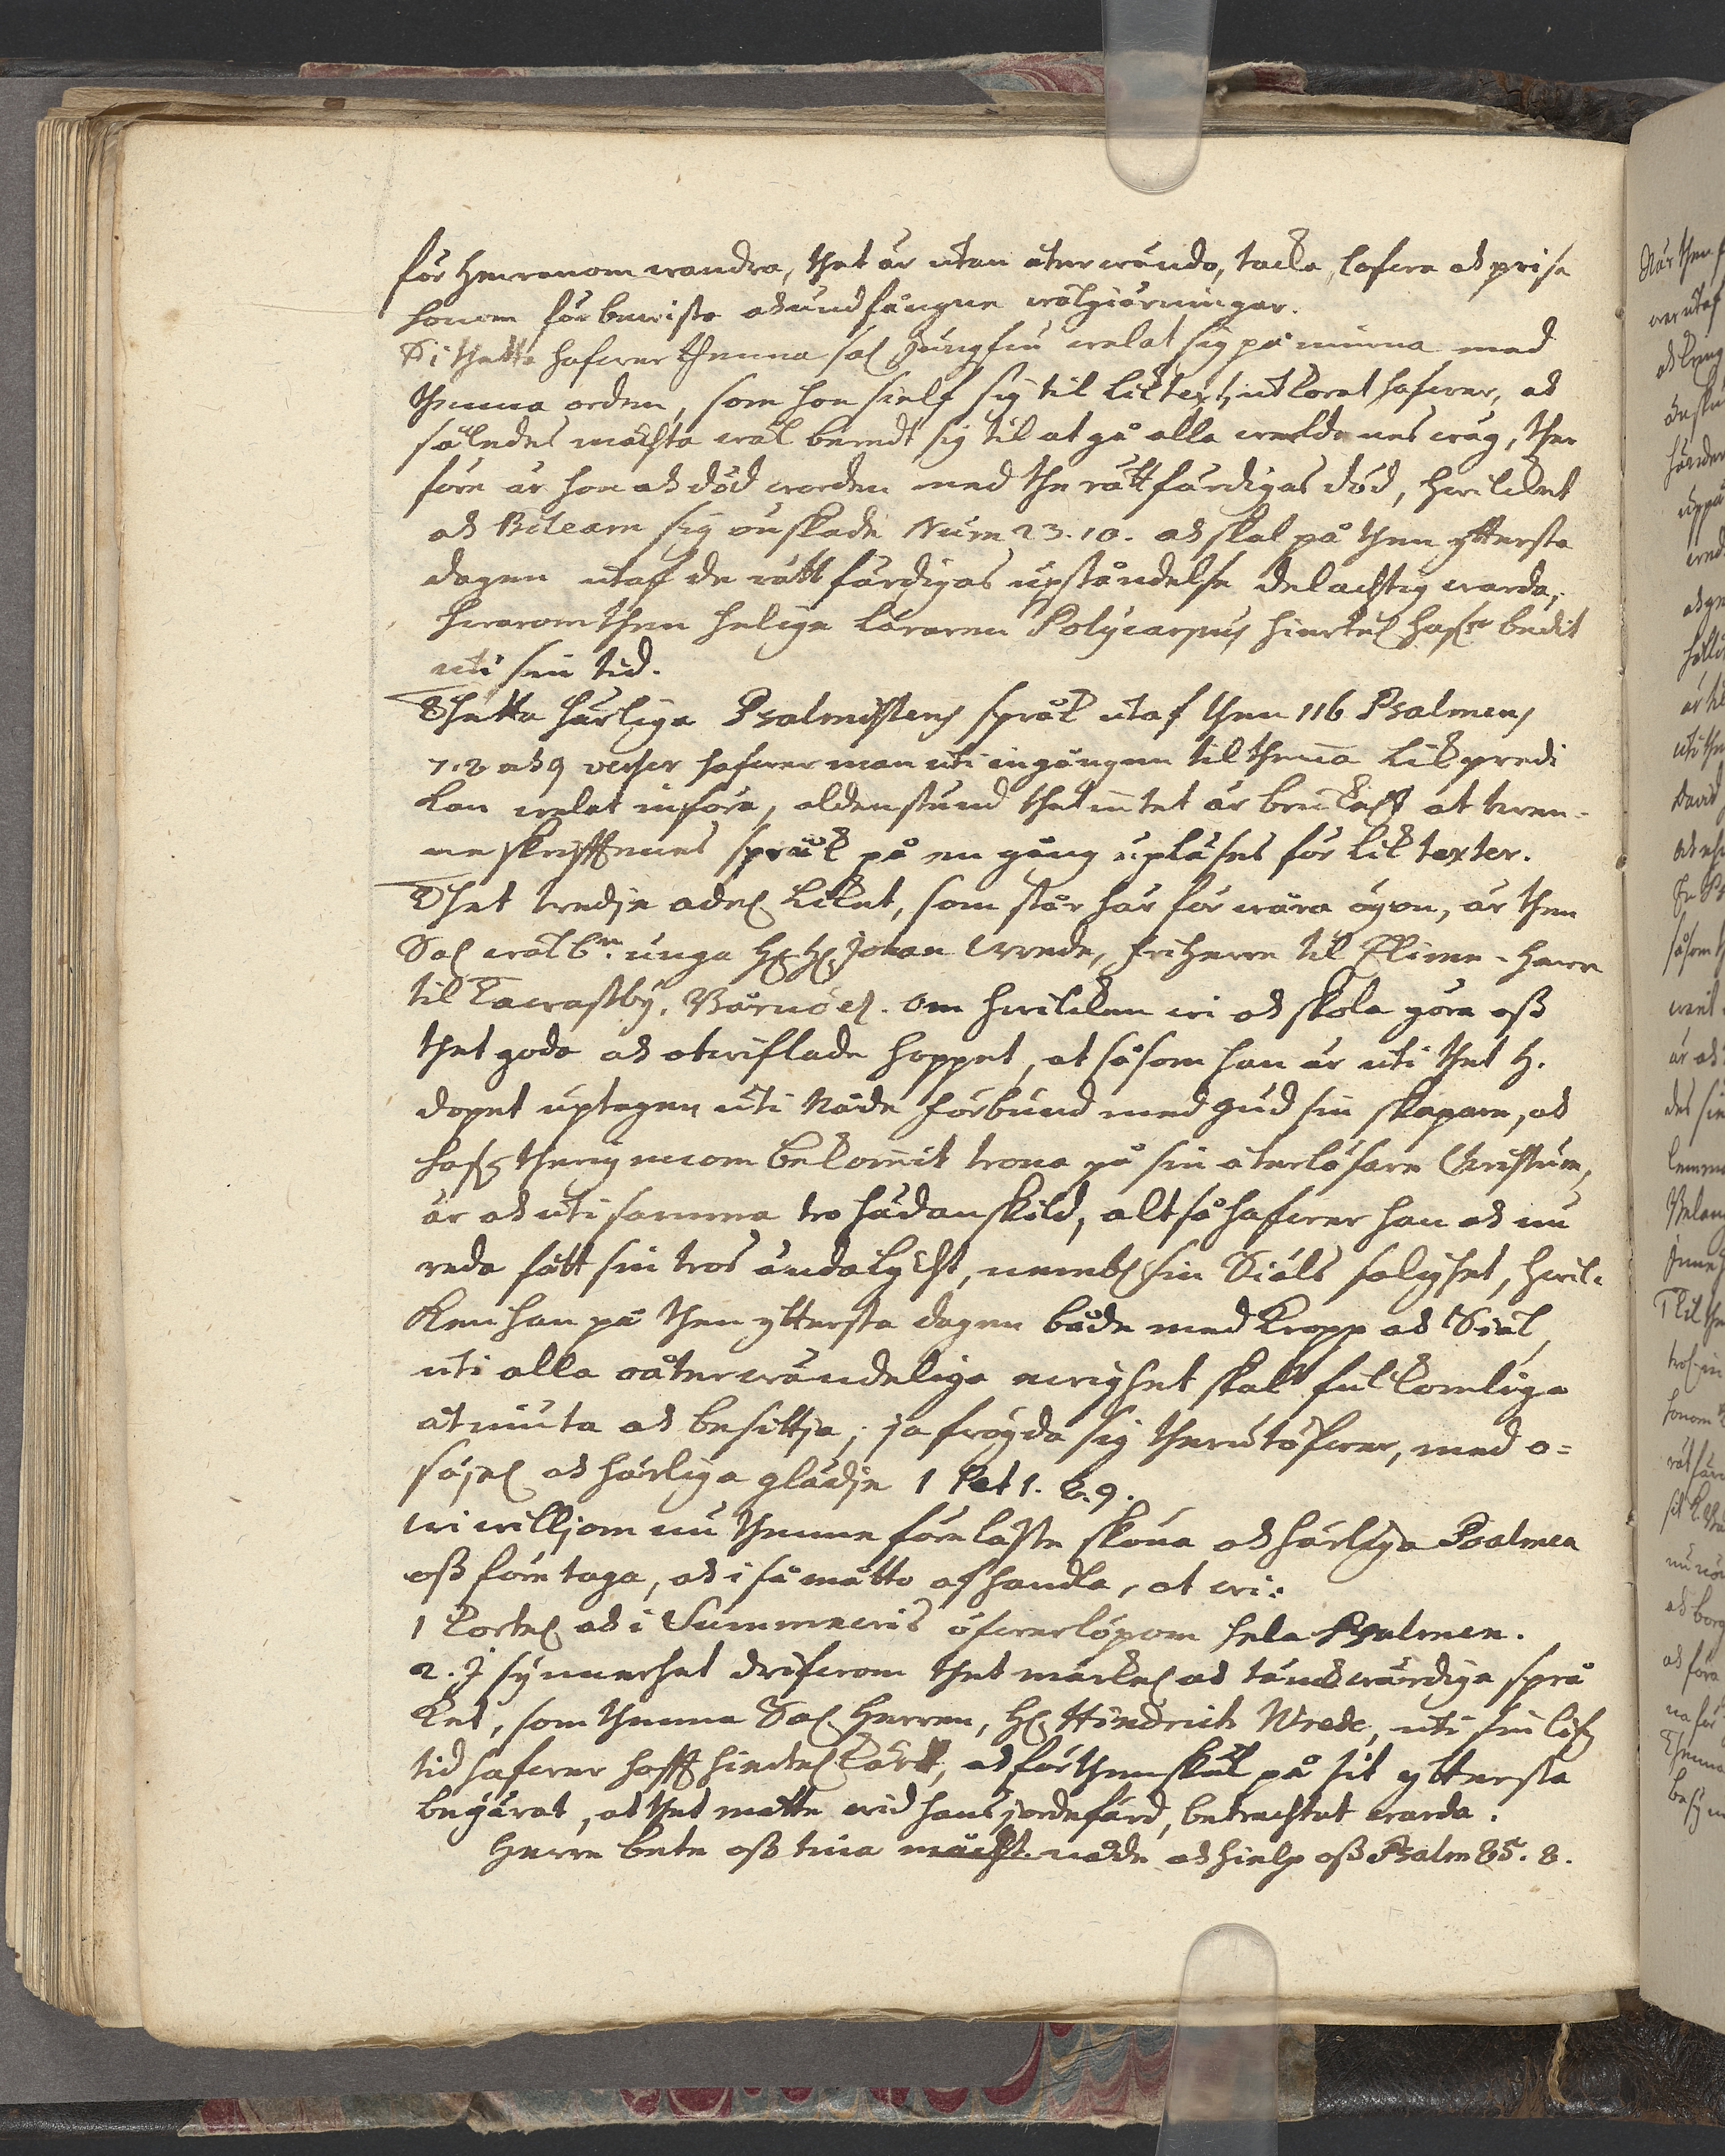 för Herranom wandra, thet är utan återwändo, tacka, lofwa ok prisa
honom för bewista ok undfångne wälgiärningar.
Di thetta hafwer thenna sal Jungfru welat sig påminna med
thenna orden, som hon sielf sig til Liktext utkorat hafwer, ok
således måhsta wäl beredt sig til at gå alla werldenes wäg, ther
före är hon ok död worden med the rättfärdigas död, hwilcket
ok Bileam sig önskade Num 23.10. ok skal på then yttersta
dagen utaf de rättfärdigas upståndelse delachtig warda,
hwarom then helige läraren Polycarpus hiertel hafr bedit
uti sin tid.
Thetta härliga Psalmistens språk utaf then 116 Psalmens
7.8 ok 9 verser hafwer man uti ingången til thenna Likpredi
kan welat införa, aldenstund thet intet är brukat at twen-
ne skrifftenes språk på en gång upläses för Lik texter.
Thet tredje adel Liket, som står här för wåra ögon, är then
Sal wälbn. unga Hr Hr Johan Wrede, friherre til Elime, herre
til Tawastby, Wärnö etc. Om hwilcken wi ok skola göra oss
thet goda ok otwiflade hoppet, at såsom han är uti thet H.
dopet uptagen uti Nåde förbund med Gud sin skapare, ok
hafr therigenom bekommit trona på sin återlösare Christum,
är ok uti samma tro hädanskild, altså hafwer han ok nu
reda fått sin tros ändalycht, nembl sin Siäls salighet, hwil-
ken han på then yttersta dagen både med Kropp ok Siäl,
uti alla oåterwändeliga ewighet skal fulkomliga
åtniuta ok besittja, ja fröyda sig therutöfwer, med o=
säjel ok härliga glädje 1 Pet 1. 8. 9.
Wi willjom nu thenne föreläste sköna ok härliga Psalmen
oss före taga, ok i så matto afhandla, at wi:
1 Kortel ok i Summewis öfwerlöpom hela Psalmen.
2. I synnerhet drifwom thet märkel ok tänckwärdiga språ
ket, som thenne Sal Herren, Hr Hindrich Wrede, uti sin lifz
tid hafwer hafft hiertel kärt, ok för then skul på sit yttersta
begärat, at thet matte wid hans jordefärd, betrachtet warda.
Herre bete oss tina nåde ok hielp oss Psalm 85. 8.